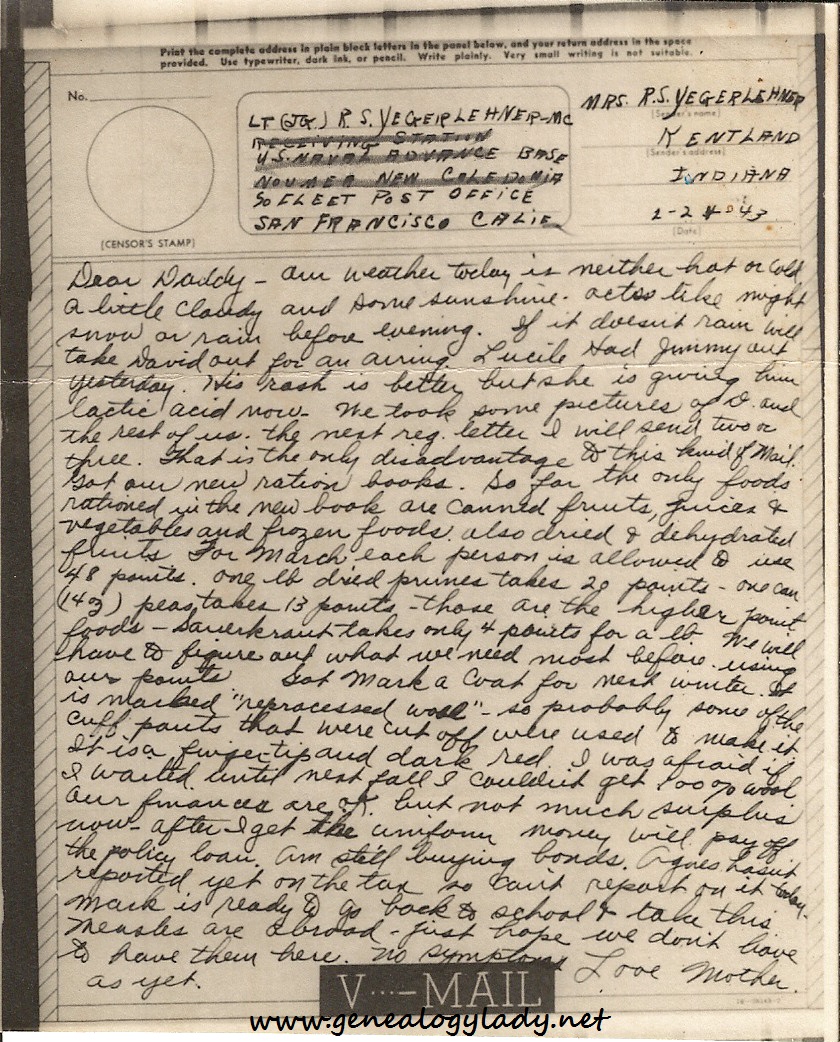 Print the complete address in plain block letters in the panel below, and your return address in the space
provided. Use typewriter, dark ink, or pencil. Write plainly. Very small writing is not suitable.
No.
LT (JG.) R. S. YEGERLEHNER-MC
RECEIVING STATION
U.S. NAVAL ADVANCE BASE
NOUMEA NEW CALEDONIA
℅ FLEET POST OFFICE
SAN FRANCISCO CALIF
MRS. R.S. YEGERLEHNER
(Sender's name)
KENTLAND
(Sender's address)
INDIANA
2-24-43
(Date)
(CENSOR'S STAMP)
Dear Daddy - Our weather today is neither hot or cold
a little cloudy and some sunshine. acts like might
snow or rain before evening. If it doesn't rain will
take David out for an airing. Lucile Had Jimmy out
yesterday. His rash is better but she is giving him
lactic acid now - We took some pictures of D. and
the rest of us. the next reg. letter I will send two or
three. That is the only disadvantage to this kind of Mail.
Got our new ration books. So far the only foods
rationed in the new book are canned fruits, juices &
vegetables and frozen foods. also dried & dehydrated
fruits For March each person is allowed to use
48 points. one lb dried prunes takes 20 points - one can
(14 oz) peas takes 13 points - those are the higher point
foods - Sauerkraut takes only 4 points for a lb We will
have to figure out what we need most before using
our points Got Mark a coat for next winter. It
is marked "reprocessed wool" - so probably some of the
cuff pants that were cut off were used to make it
It is a fingertip and dark red. I was afraid if
I waited until next fall I couldn't get 100% wool
Our finances are OK. but not much surplus
now - after I get the uniform money will pay off
the policy loan. Am still buying bonds. Agnes hasn't
reported yet on the tax so can't report on it today.
Mark is ready to go back to school & take this
Measles are abroad - just hope we don't have
to have them here. No symptoms Love Mother.
as yet.
V···-MAIL
www.genealogylady.net